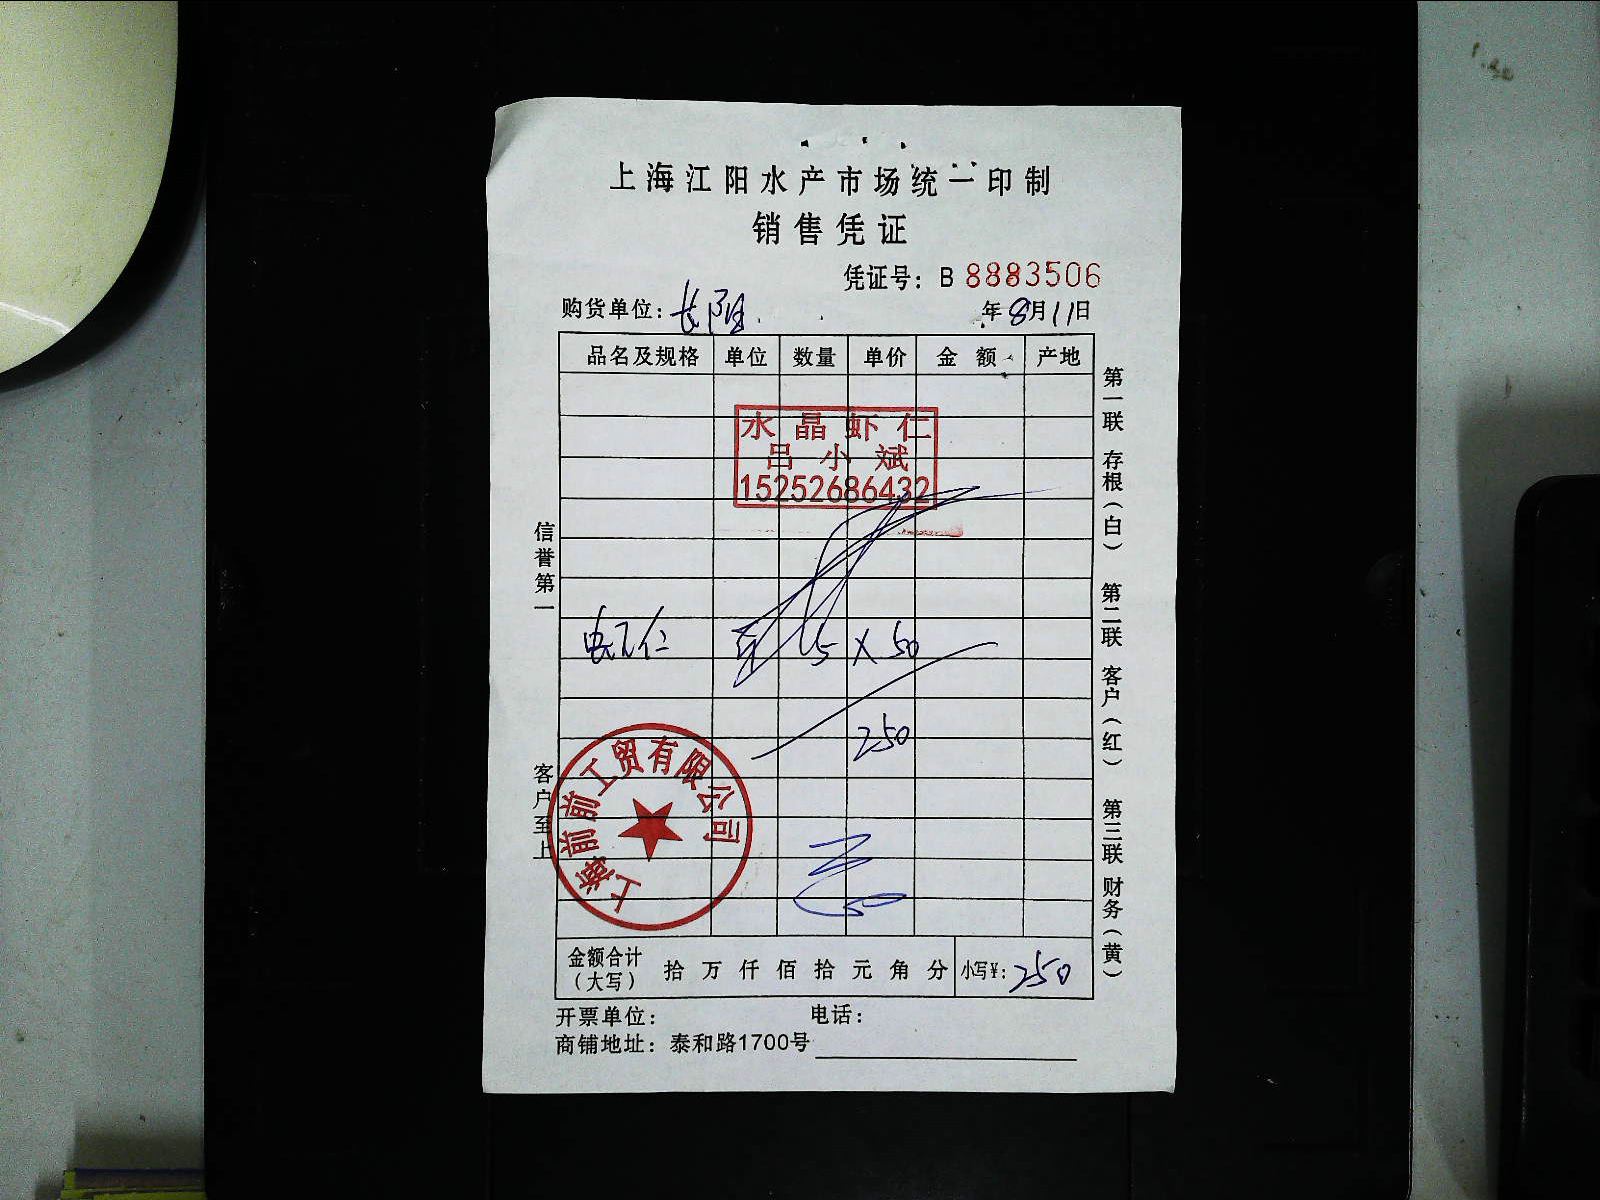 上海江阳水产市场统一印制
销售凭证
凭证号：B 8883506
购货单位：长阳
年8月11日
品名及规格 单位 数量 单价 金额 产地
水晶虾仁
吕小斌
15252686432
虾仁 5 × 50
250
上海前前工贸有限公司
金额合计（大写） 拾 万 仟 佰 拾 元 角 分 小写¥：250
开票单位： 电话：
商铺地址：泰和路1700号
信誉第一 客户至上
第一联 存根（白） 第二联 客户（红） 第三联 财务（黄）